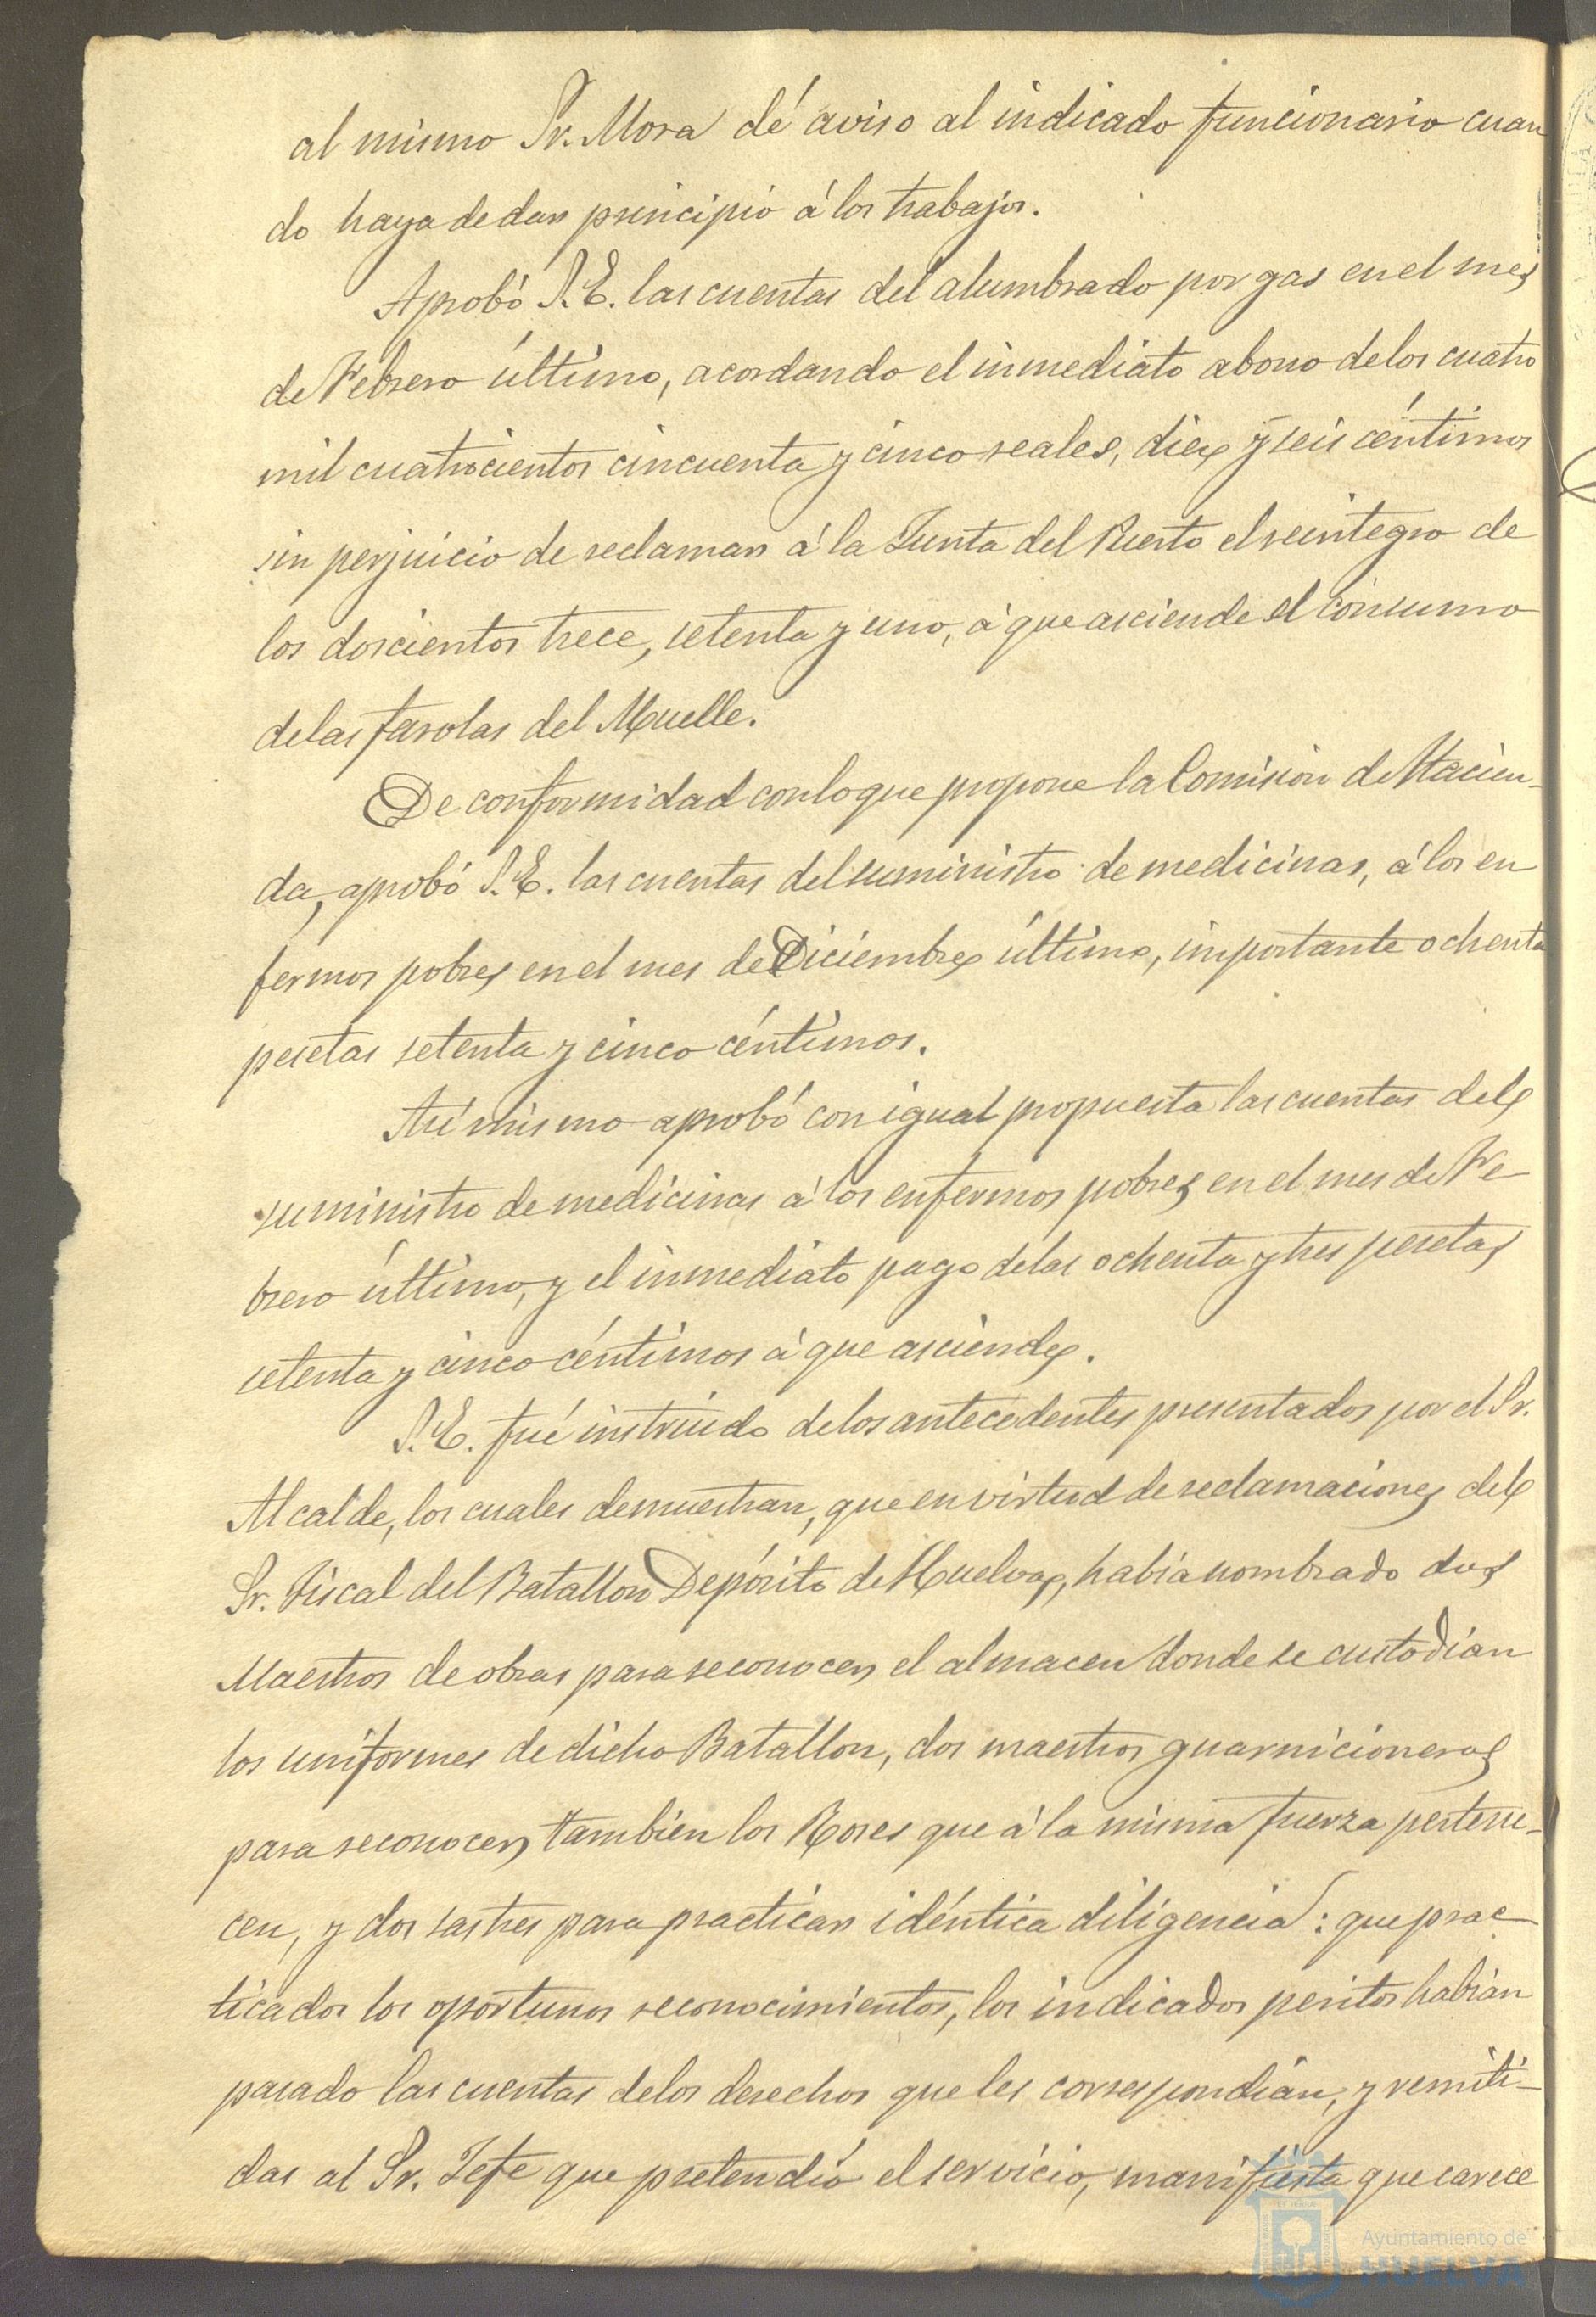 al mismo Sr. Mora dé aviso al indicado funcionario cuan
do haya de dar principio á los trabajos.
Aprobó S. E. las cuentas del alumbrado por gas en el mes
de Febrero último, acordando el inmediato abono de los cuatro
mil cuatrocientos cincuenta y cinco reales, diez y seis céntimos
sin perjuicio de reclamar á la Junta del Puerto el reintegro de
los doscientos trece, setenta y uno, á que asciende el consumo
de las farolas del Muelle.
De conformidad con lo que propone la Comisión de Hacien-
da, aprobó S. E. las cuentas del suministro de medicinas, á los en
fermos pobres en el mes de Diciembre último, importante ochenta
pesetas setenta y cinco céntimos.
Así mismo aprobó con igual propuesta las cuentas del
suministro de medicinas á los enfermos pobres en el mes de Fe-
brero último, y el inmediato pago de las ochenta y tres pesetas
setenta y cinco céntimos á que asciende.
S. E. fué instruido de los antecedentes presentados por el Sr.
Alcalde, los cuales demuestran, que en virtud de reclamaciones del
Sr. Fiscal del Batallon Depósito de Huelva, habia nombrado dos
Maestros de obras para reconocer el almacen donde se custodian
los uniformes de dicho Batallon, dos maestros guarnicioneros
para reconocer tambien los Roses que á la misma fuerza pertene-
cen, y dos sastres para practicar idéntica diligencia: que prac-
ticados los oportunos reconocimientos, los indicados peritos habian
pasado las cuentas de los derechos que les correspondian, y remiti-
das al Sr. Jefe que pretendió el servicio, manifiesta que carece
Ayuntamiento de
HUELVA